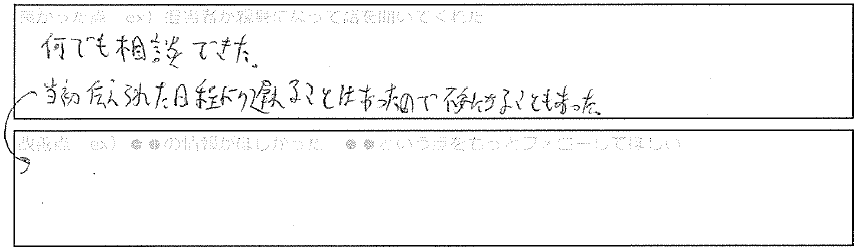 良かった点 ex) 担当者が親身になって話を聞いてくれた
何でも相談できた。
当初伝えられた日程より遅れることはあったので不安になることもあった。
改善点 ex) ●●の情報がほしかった ●●という点をもっとフォローしてほしい